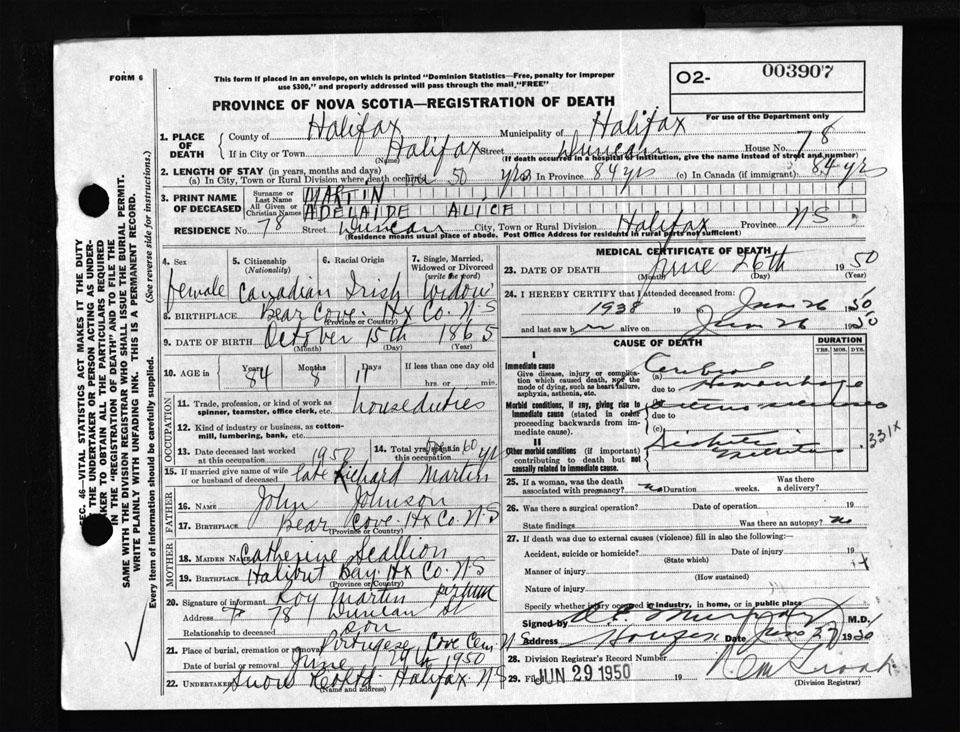 FORM 6
This form if placed in an envelope, on which is printed "Dominion Statistics—Free, penalty for improper
use $300," and properly addressed will pass through the mail "FREE"
O2- 003907
For use of the Department only
PROVINCE OF NOVA SCOTIA—REGISTRATION OF DEATH
1. PLACE OF DEATH
County of Halifax Municipality of Halifax
If in City or Town Halifax (Name) Street Duncan House No. 78
(If death occurred in a hospital or institution, give the name instead of street and number)
2. LENGTH OF STAY (in years, months and days)
(a) In City, Town or Rural Division where death occurred 50 yrs In Province 84 yrs (c) In Canada (if immigrant) 84 yrs
3. PRINT NAME OF DECEASED
Surname or Last Name MARTIN
All Given or Christian Names ADELAIDE ALICE
RESIDENCE No. 78 Street Duncan City, Town or Rural Division Halifax Province NS
(Residence means usual place of abode. Post Office Address for residence in rural parts not sufficient)
4. Sex female
5. Citizenship (Nationality) Canadian
6. Racial Origin Irish
7. Single, Married, Widowed or Divorced (write the word) Widow
8. BIRTHPLACE Bear Cove. Hx Co. N.S
(Province or Country)
9. DATE OF BIRTH October 15th 1865
(Month) (Day) (Year)
10. AGE in Years 84 Months 8 Days 11 If less than one day old hrs. or min.
OCCUPATION
11. Trade, profession, or kind of work as spinner, teamster, office clerk, etc. houseduties
12. Kind of industry or business, as cotton-mill, lumbering, bank, etc.
13. Date deceased last worked at this occupation 1950
14. Total yrs. spent in this occupation 60 yrs
15. If married give name of wife or husband of deceased late Richard Martin
FATHER
16. NAME John Johnson
17. BIRTHPLACE Bear Cove. Hx Co. N S
(Province or Country)
MOTHER
18. MAIDEN NAME Catherine Scallion
19. BIRTHPLACE Halibut Bay Hx Co. N.S
(Province or Country)
20. Signature of informant Roy Martin
Address 78 Duncan St
Relationship to deceased son
21. Place of burial, cremation or removal Portugese Cove Cem N S
Date of burial or removal June 29th 1950
22. Undertaker Snow & Co Ltd. Halifax. N S
(Name and address)
MEDICAL CERTIFICATE OF DEATH
23. DATE OF DEATH June 26th 1950
(Month) (Day) (Year)
24. I HEREBY CERTIFY that I attended deceased from:
1938 19 to Jun 26 1950
and last saw her alive on Jun 26 1950
CAUSE OF DEATH
DURATION
YRS. MOS. DYS.
I
Immediate cause
Give disease, injury or complication which caused death, not the mode of dying, such as heart failure, asphyxia, asthenia, etc.
(a) Cerebral Hemorrhage
due to
Morbid conditions, if any, giving rise to immediate cause (stated in order proceeding backwards from immediate cause).
(b)
due to
(c)
II
Other morbid conditions (if important) contributing to death but not causally related to immediate cause.
Diabetes Mellitus
331X
25. If a woman, was the death associated with pregnancy? no Duration weeks. Was there a delivery?
26. Was there a surgical operation? Date of operation 19
State findings Was there an autopsy? no
27. If death was due to external causes (violence) fill in also the following:—
Accident, suicide or homicide? Date of injury 19
(State which)
Manner of injury
(How sustained)
Nature of injury
Specify whether injury occurred in industry, in home, or in public place
Signed by Murphy M.D.
Address Date June 27 1950
28. Division Registrar's Record Number
29. Filed JUN 29 1950 19
(Division Registrar)
SEC. 46—VITAL STATISTICS ACT MAKES IT THE DUTY
THE UNDERTAKER OR PERSON ACTING AS UNDER-
TAKER TO OBTAIN ALL THE PARTICULARS REQUIRED
IN THE "REGISTRATION OF DEATH" AND TO FILE THE
SAME WITH THE DIVISION REGISTRAR WHO SHALL ISSUE THE BURIAL PERMIT.
WRITE PLAINLY WITH UNFADING INK. THIS IS A PERMANENT RECORD.
Every item of information should be carefully supplied. (See reverse side for instructions.)